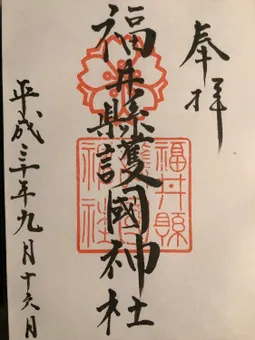 奉拝
福井縣護國神社
福井縣
護國
神社
平成三十年九月十六日